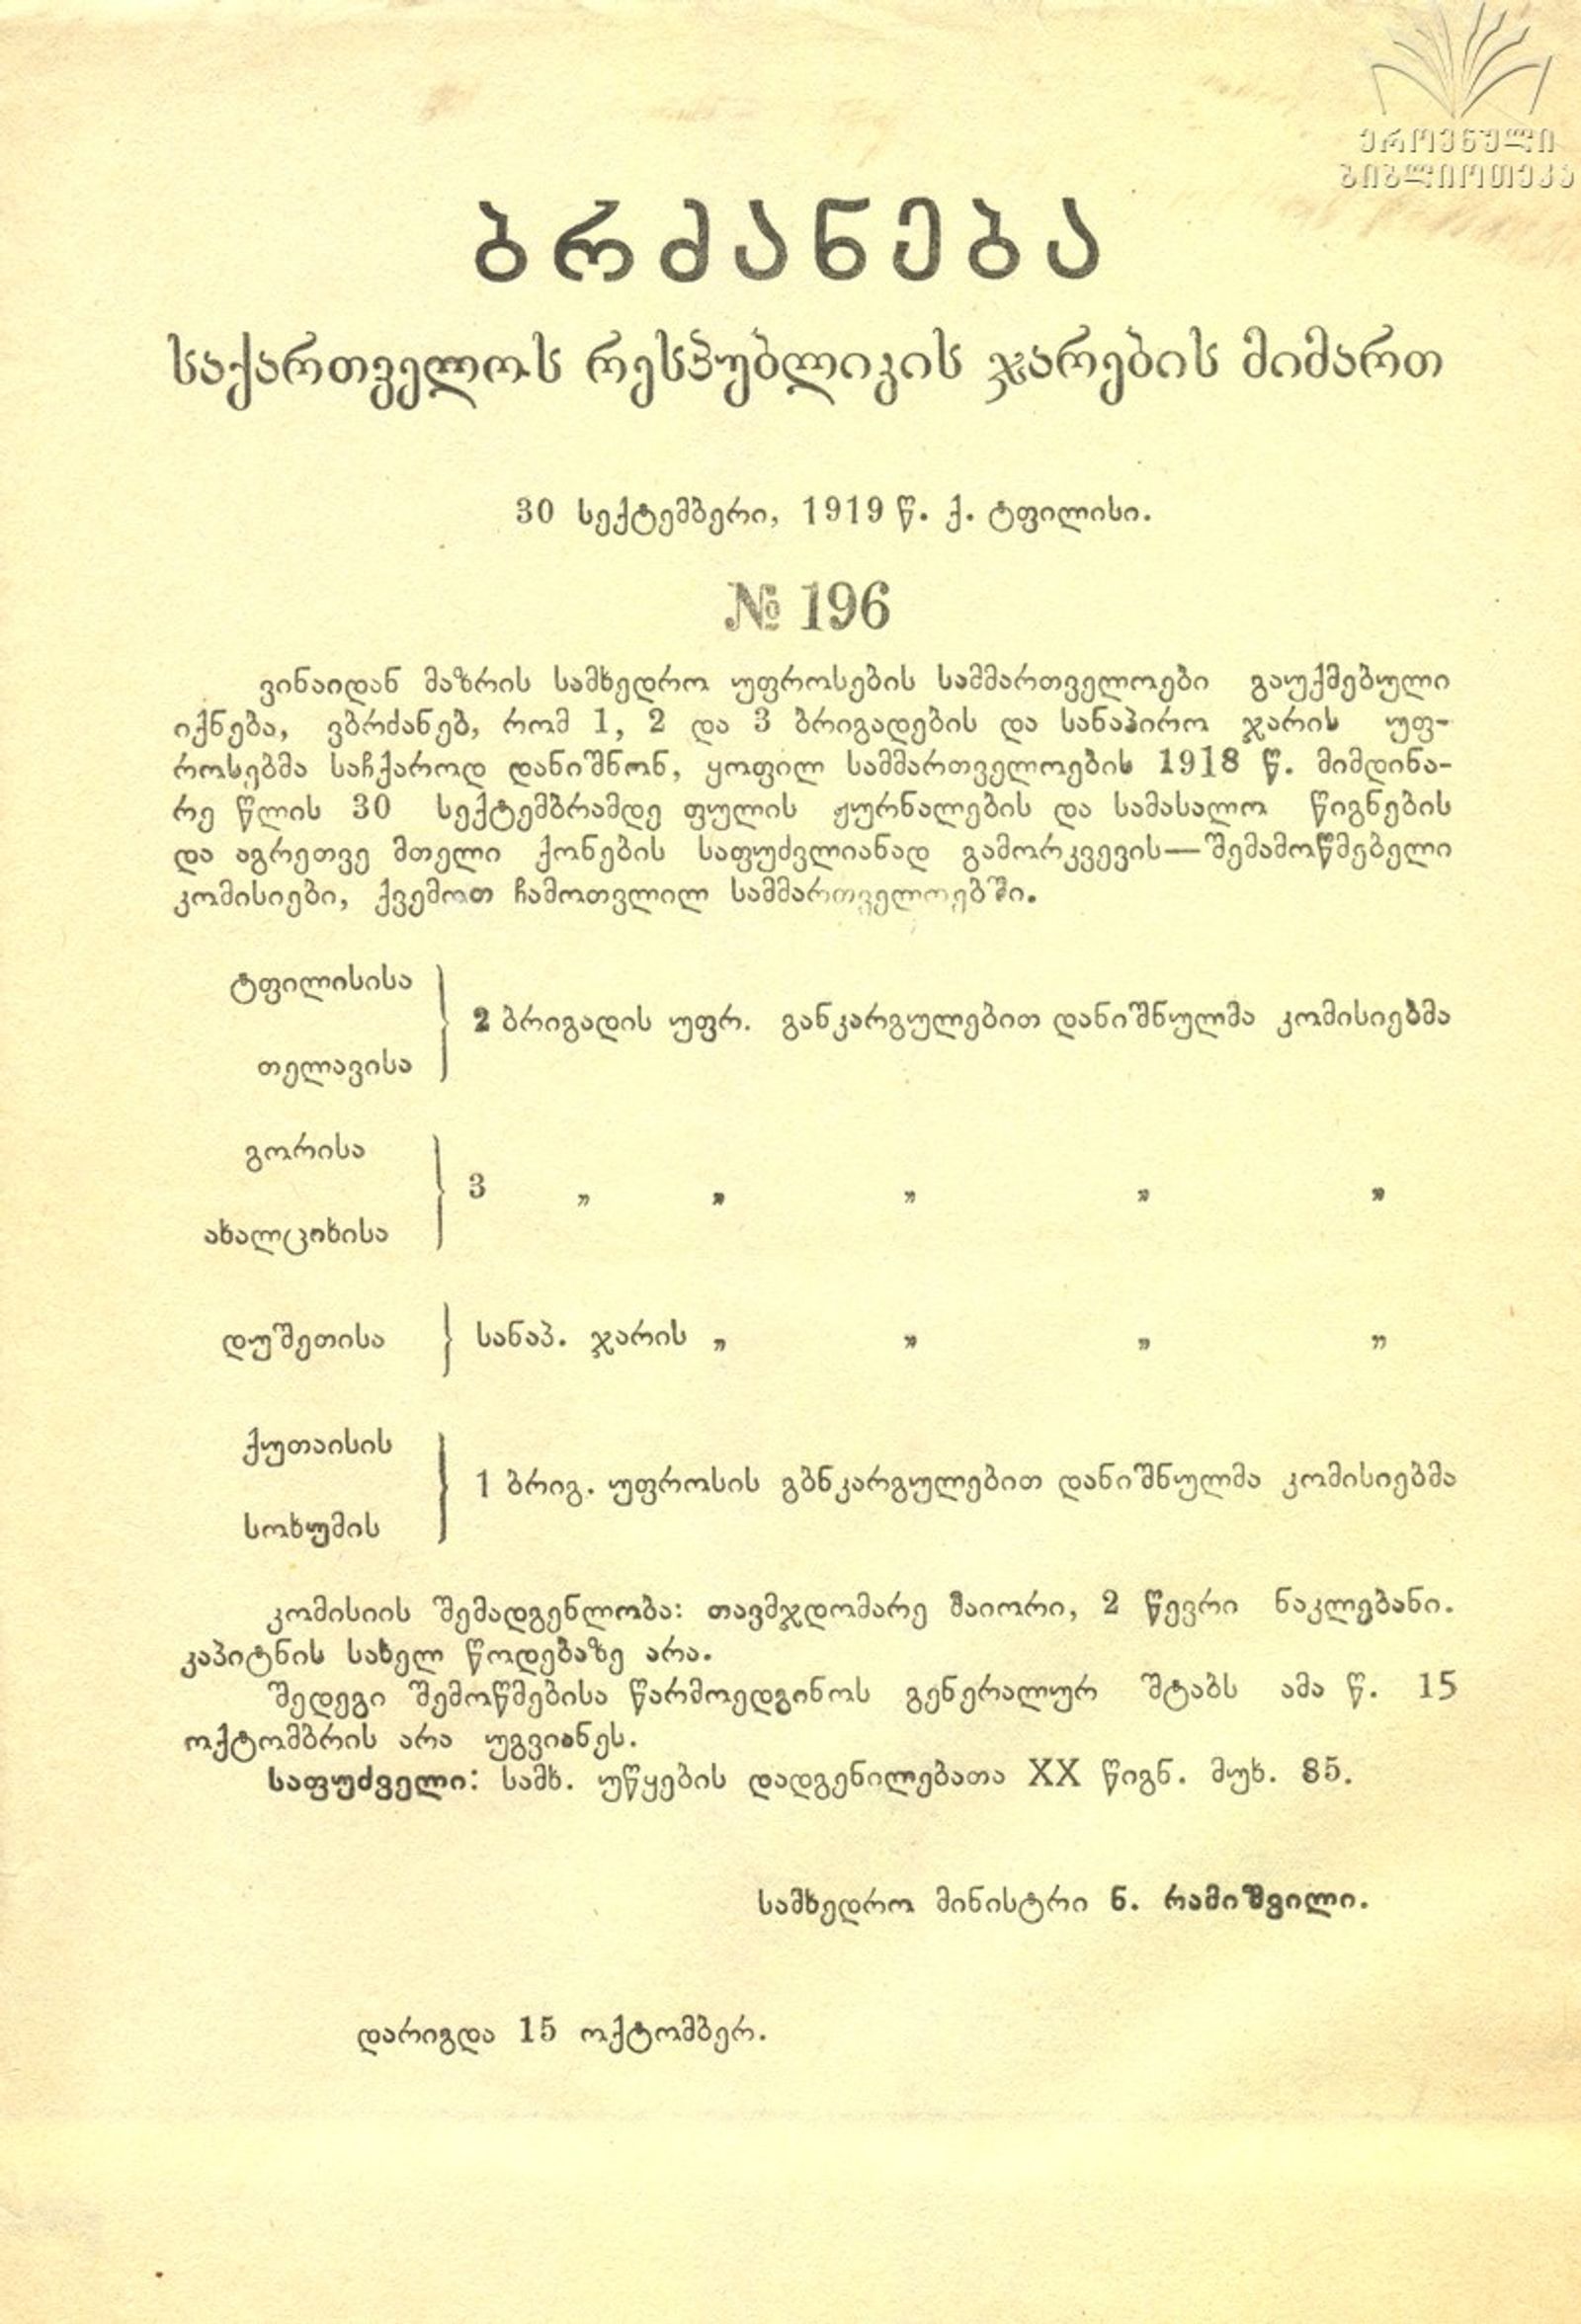 ეროვნული
ბიბლიოთეკა
ბრძანება
საქართველოს რესპუბლიკის ჯარების მიმართ
30 სექტემბერი, 1919 წ. ქ. ტფილისი.
№ 196
ვინაიდან მაზრის სამხედრო უფროსების სამმართველოები გაუქმებული
იქნება, ვბრძანებ, რომ 1, 2 და 3 ბრიგადების და სანაპირო ჯარის უფ-
როსებმა საჩქაროდ დანიშნონ, ყოფილ სამმართველოების 1918 წ. მიმდინა-
რე წლის 30 სექტემბრამდე ფულის ჟურნალების და სამასალო წიგნების
და აგრეთვე მთელი ქონების საფუძვლიანად გამორკვევის—შემამოწმებელი
კომისიები, ქვემოთ ჩამოთვლილ სამმართველოებში.
ტფილისისა
2 ბრიგადის უფრ. განკარგულებით დანიშნულმა კომისიებმა
თელავისა
გორისა
3 „ „ „ „ „
ახალციხისა
დუშეთისა } სანაპ. ჯარის „ „ „ „
ქუთაისის
1 ბრიგ. უფროსის გბნკარგულებით დანიშნულმა კომისიებმა
სოხუმის
კომისიის შემადგენლობა: თავმჯდომარე მაიორი, 2 წევრი ნაკლებანი.
კაპიტნის სახელ წოდებაზე არა.
შედეგი შემოწმებისა წარმოედგინოს გენერალურ შტაბს ამა წ. 15
ოქტომბრის არა უგვიანეს.
საფუძველი: სამხ. უწყების დადგენილებათა XX წიგნ. მუხ. 85.
სამხედრო მინისტრი ნ. რამიშვილი.
დარიგდა 15 ოქტომბერ.